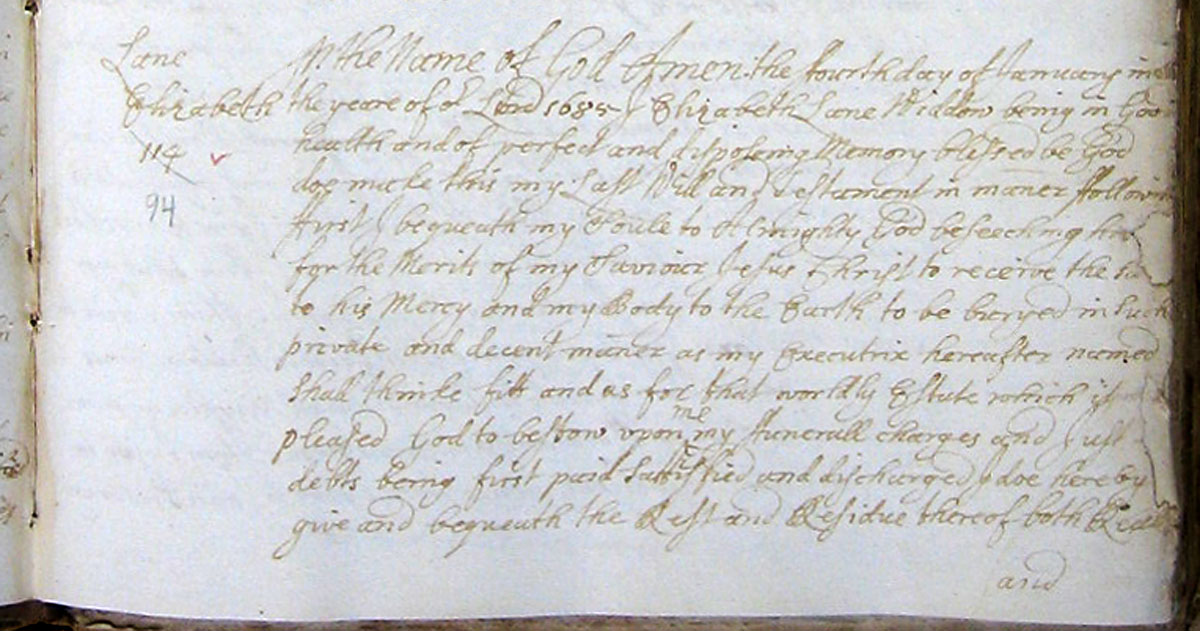 Lane
Elizabeth
114
94
In the Name of God Amen. the fourth day of January in
the yeare of or Lord 1685 I Elizabeth Lane Widdow being in Good
health and of perfect and disposeing Memory blessed be God
doe make this my Last Will and Testament in maner following
ffirst I bequeath my Soule to Almighty God beseeching him
for the Merits of my Saviour Jesus Christ to receive the
to his Mercy and my Body to the Earth to be buryed in such
private and decent maner as my Executrix hereafter named
shall thinke fitt and as for that worldly Estate which it
me
pleased God to bestow upon my ffunerall charges and Just
debts being first paid Sattisfied and discharged I doe hereby
give and bequeath the Rest and Residue thereof both
and